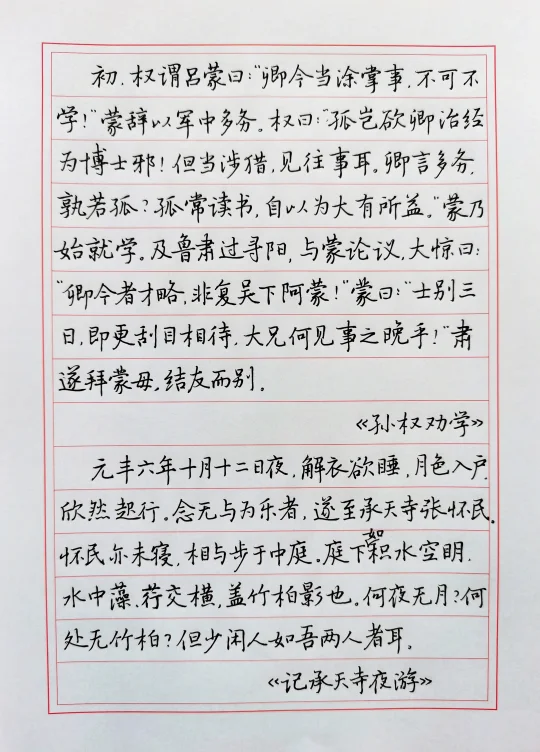 初，权谓吕蒙曰：“卿今当涂掌事，不可不
学！”蒙辞以军中多务。权曰：“孤岂欲卿治经
为博士邪！但当涉猎，见往事耳。卿言多务，
孰若孤？孤常读书，自以为大有所益。”蒙乃
始就学。及鲁肃过寻阳，与蒙论议，大惊曰：
“卿今者才略，非复吴下阿蒙！”蒙曰：“士别三
日，即更刮目相待，大兄何见事之晚乎！”肃
遂拜蒙母，结友而别。
《孙权劝学》
元丰六年十月十二日夜，解衣欲睡，月色入户，
欣然起行。念无与为乐者，遂至承天寺张怀民。
怀民亦未寝，相与步于中庭。庭下如积水空明，
水中藻、荇交横，盖竹柏影也。何夜无月？何
处无竹柏？但少闲人如吾两人者耳。
《记承天寺夜游》